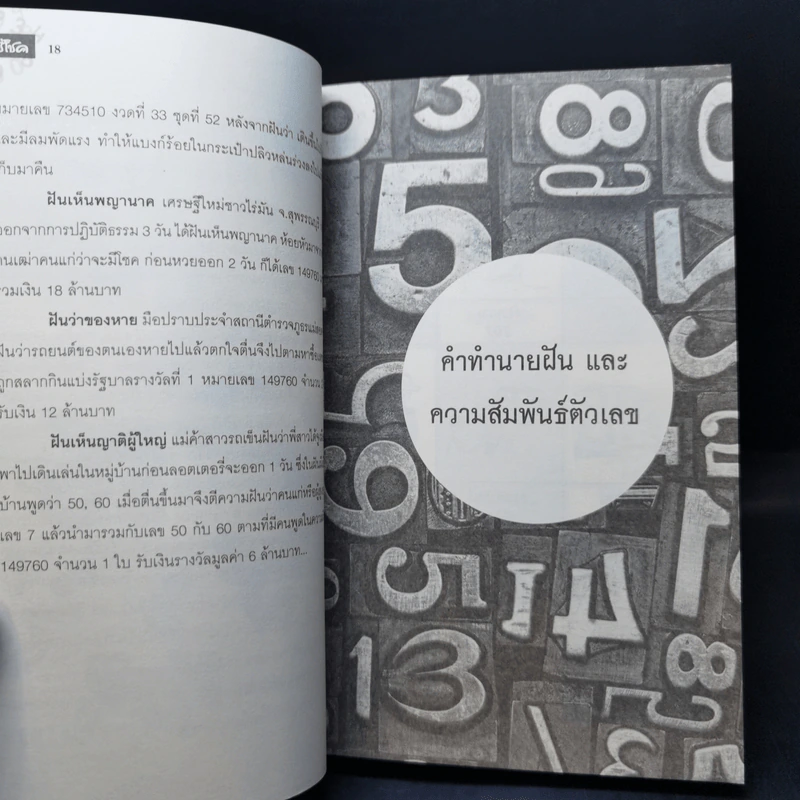 18
หมายเลข 734510 งวดที่ 33 ชุดที่ 52 หลังจากฝันว่า
และมีลมพัดแรง ทำให้แบงก์ร้อยในกระเป๋าปลิวหล่นร่วงลง
เก็บมาคืน
ฝันเห็นพญานาค เศรษฐีใหม่ชาวไร่มัน จ.สุพรรณบุรี
ออกจากการปฏิบัติธรรม 3 วัน ได้ฝันเห็นพญานาค ห้อยหัวมา
คนเฒ่าคนแก่ว่าจะมีโชค ก่อนหวยออก 2 วัน ก็ได้เลข 149760
รวมเงิน 18 ล้านบาท
ฝันว่าของหาย มือปราบประจำสถานีตำรวจภูธร
ฝันว่ารถยนต์ของตนเองหายไปแล้วตกใจตื่นจึงไปตามหา
ถูกสลากกินแบ่งรัฐบาลรางวัลที่ 1 หมายเลข 149760 จำนวน
รับเงิน 12 ล้านบาท
ฝันเห็นญาติผู้ใหญ่ แม่ค้าสาวรถเข็นฝันว่าพี่สาวได้
พาไปเดินเล่นในหมู่บ้านก่อนลอตเตอรี่จะออก 1 วัน ซึ่งใน
บ้านพูดว่า 50, 60 เมื่อตื่นขึ้นมาจึงตีความฝันว่าคนแก่หรือ
เลข 7 แล้วนำมารวมกับเลข 50 กับ 60 ตามที่มีคนพูดใน
149760 จำนวน 1 ใบ รับเงินรางวัลมูลค่า 6 ล้านบาท...
คำทำนายฝัน และ
ความสัมพันธ์ตัวเลข
8
5
5
14
13
8